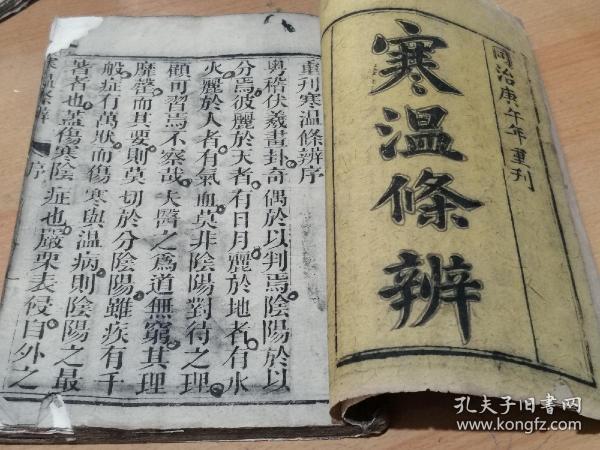 同治庚午年重刊
寒溫條辨
重刊寒溫條辨序
粵稽伏羲畫卦奇偶於以判焉陰陽於以
分焉彼麗於天者有日月麗於地者有水
火麗於人者有氣血莫非陰陽對待之理
顧可習焉不察哉夫醫之爲道無窮其理
靡罄而其要則莫切於分陰陽雖疾有千
般症有萬狀而傷寒與溫病則陰陽之最
著者也蓋傷寒陰症也嚴栗表侵自外之
寒溫條辨 序
孔夫子旧书网
www.kongfz.com